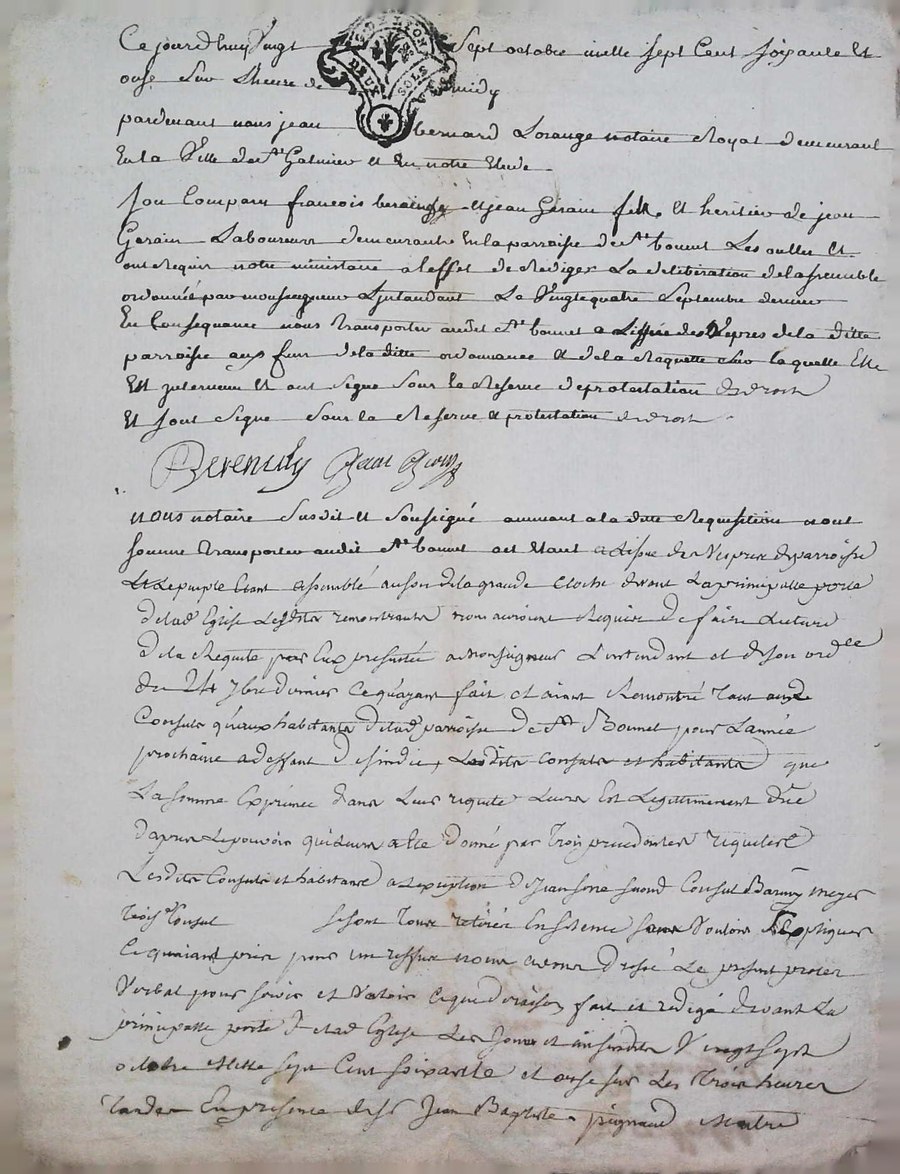 Ce jourdhuy Vingt Sept octobre mille sept Cent soixante Et
onse Sur Lheure de midy
GEN LYON
DEUX SOLS
pardevant nous jean bernard Lorange notaire Royal demeurant
En la Ville de st Galmier et En notre Etude
Son Comparu francois et jean Gerain fils Et heritier de jean
Gerain Laboureurs demeurants En la parroisse de st bonnet Les oulles Et
ont Requis notre ministaire a leffet de Rediger La deliberation de lassemblé
ordonnée par monseigneur Lintandant Le Vingtquatre Septembre dernier
En Consequance nous transporter audit st bonnet a Lissüe des Vepres de la ditte
parroisse aux fins de la ditte ordonnance & de la Requette sur laquelle Elle
Est intervenu Et ont signe sous la Reserve de protestation de droit
Et sont signe sous la Reserve & protestation de droit
Berenidy Jean
nous notaire susdit et soussigné a la ditte Requisition nous
somme transporter audit st bonnet ou Etant a Lissue des Vepres de parroisse
Et Le peuple Etant assemblé au son de la grande Cloche devant La principalle porte
de lad Eglise Lesdits remontrants nous auroient Requis de faire Lecture
de la Requete par Eux presentée a Monseigneur L'intendant et de son ordce
du 24 7bre dernier Ce quayant fait et aiant Remontré tant aux
Consuls qu'aux habitants de lad parroisse de st Bonnet pour L'année
prochaine a deffaut de sindic, Lesdits Consuls et habitants que
La somme Exprimée dans Leur requete Leurs Est Legitimement düe
dapres Le pouvoir qui Leurs a Ete donné par trois precedentes requetes
Lesdits Consuls et habitants a L'exception de second Consul
trois Consul se sont tous retirée Ensemble sans Vouloir s'Expliquer
Ce quaiant pris pour un reffus nous avons dressé Le present proces
Verbal pour servir et Valoir Ce que de raison, fait et redigé devant La
principalle porte de lad Eglise Les jour et an susdits Vingt sept
octobre Mille sept Cent soixante et onse sur Les trois heures
En presence de sr Jean Baptiste pignaud Maitre